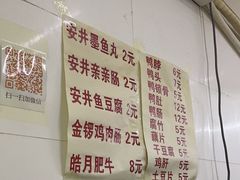 安井墨鱼丸 2元
安井亲亲肠 2元
安井鱼豆腐 2元
金锣鸡肉肠 2元
皓月肥牛 8元
鸭脖 6元
鸭头
鸭锁骨
鸭肚
鸭肠
腐竹 5元
藕片 5元
干豆腐 5元
鸡肝 5元
土豆片 5元
扫一扫加微信